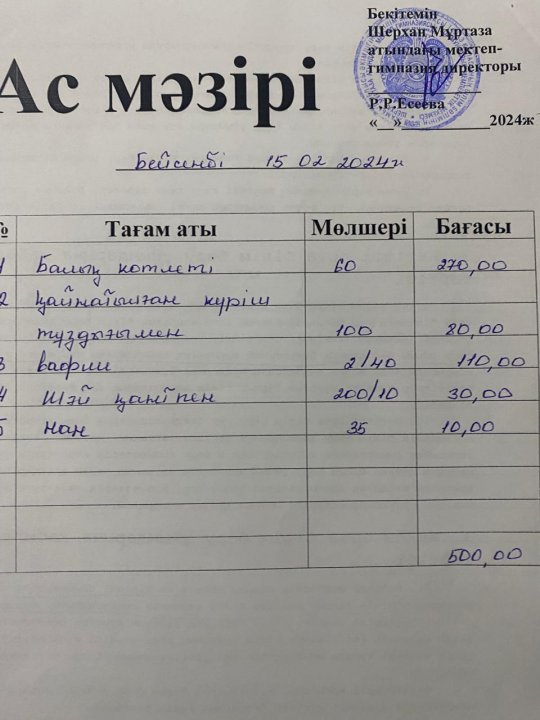 Бекітемін
Шерхан Мұртаза
атындағы мектеп-
гимназия директоры
Р.Р.Есеева
«__»____________2024ж
Ас мәзірі
Бейсенбі 15 02 2024ж
№ Тағам аты Мөлшері Бағасы
1 Балық котлеті 60 270,00
2 қайнатылған күріш
тұздығымен 100 80,00
3 вафли 2/40 110,00
4 Шәй қантпен 200/10 30,00
5 нан 35 10,00
500,00